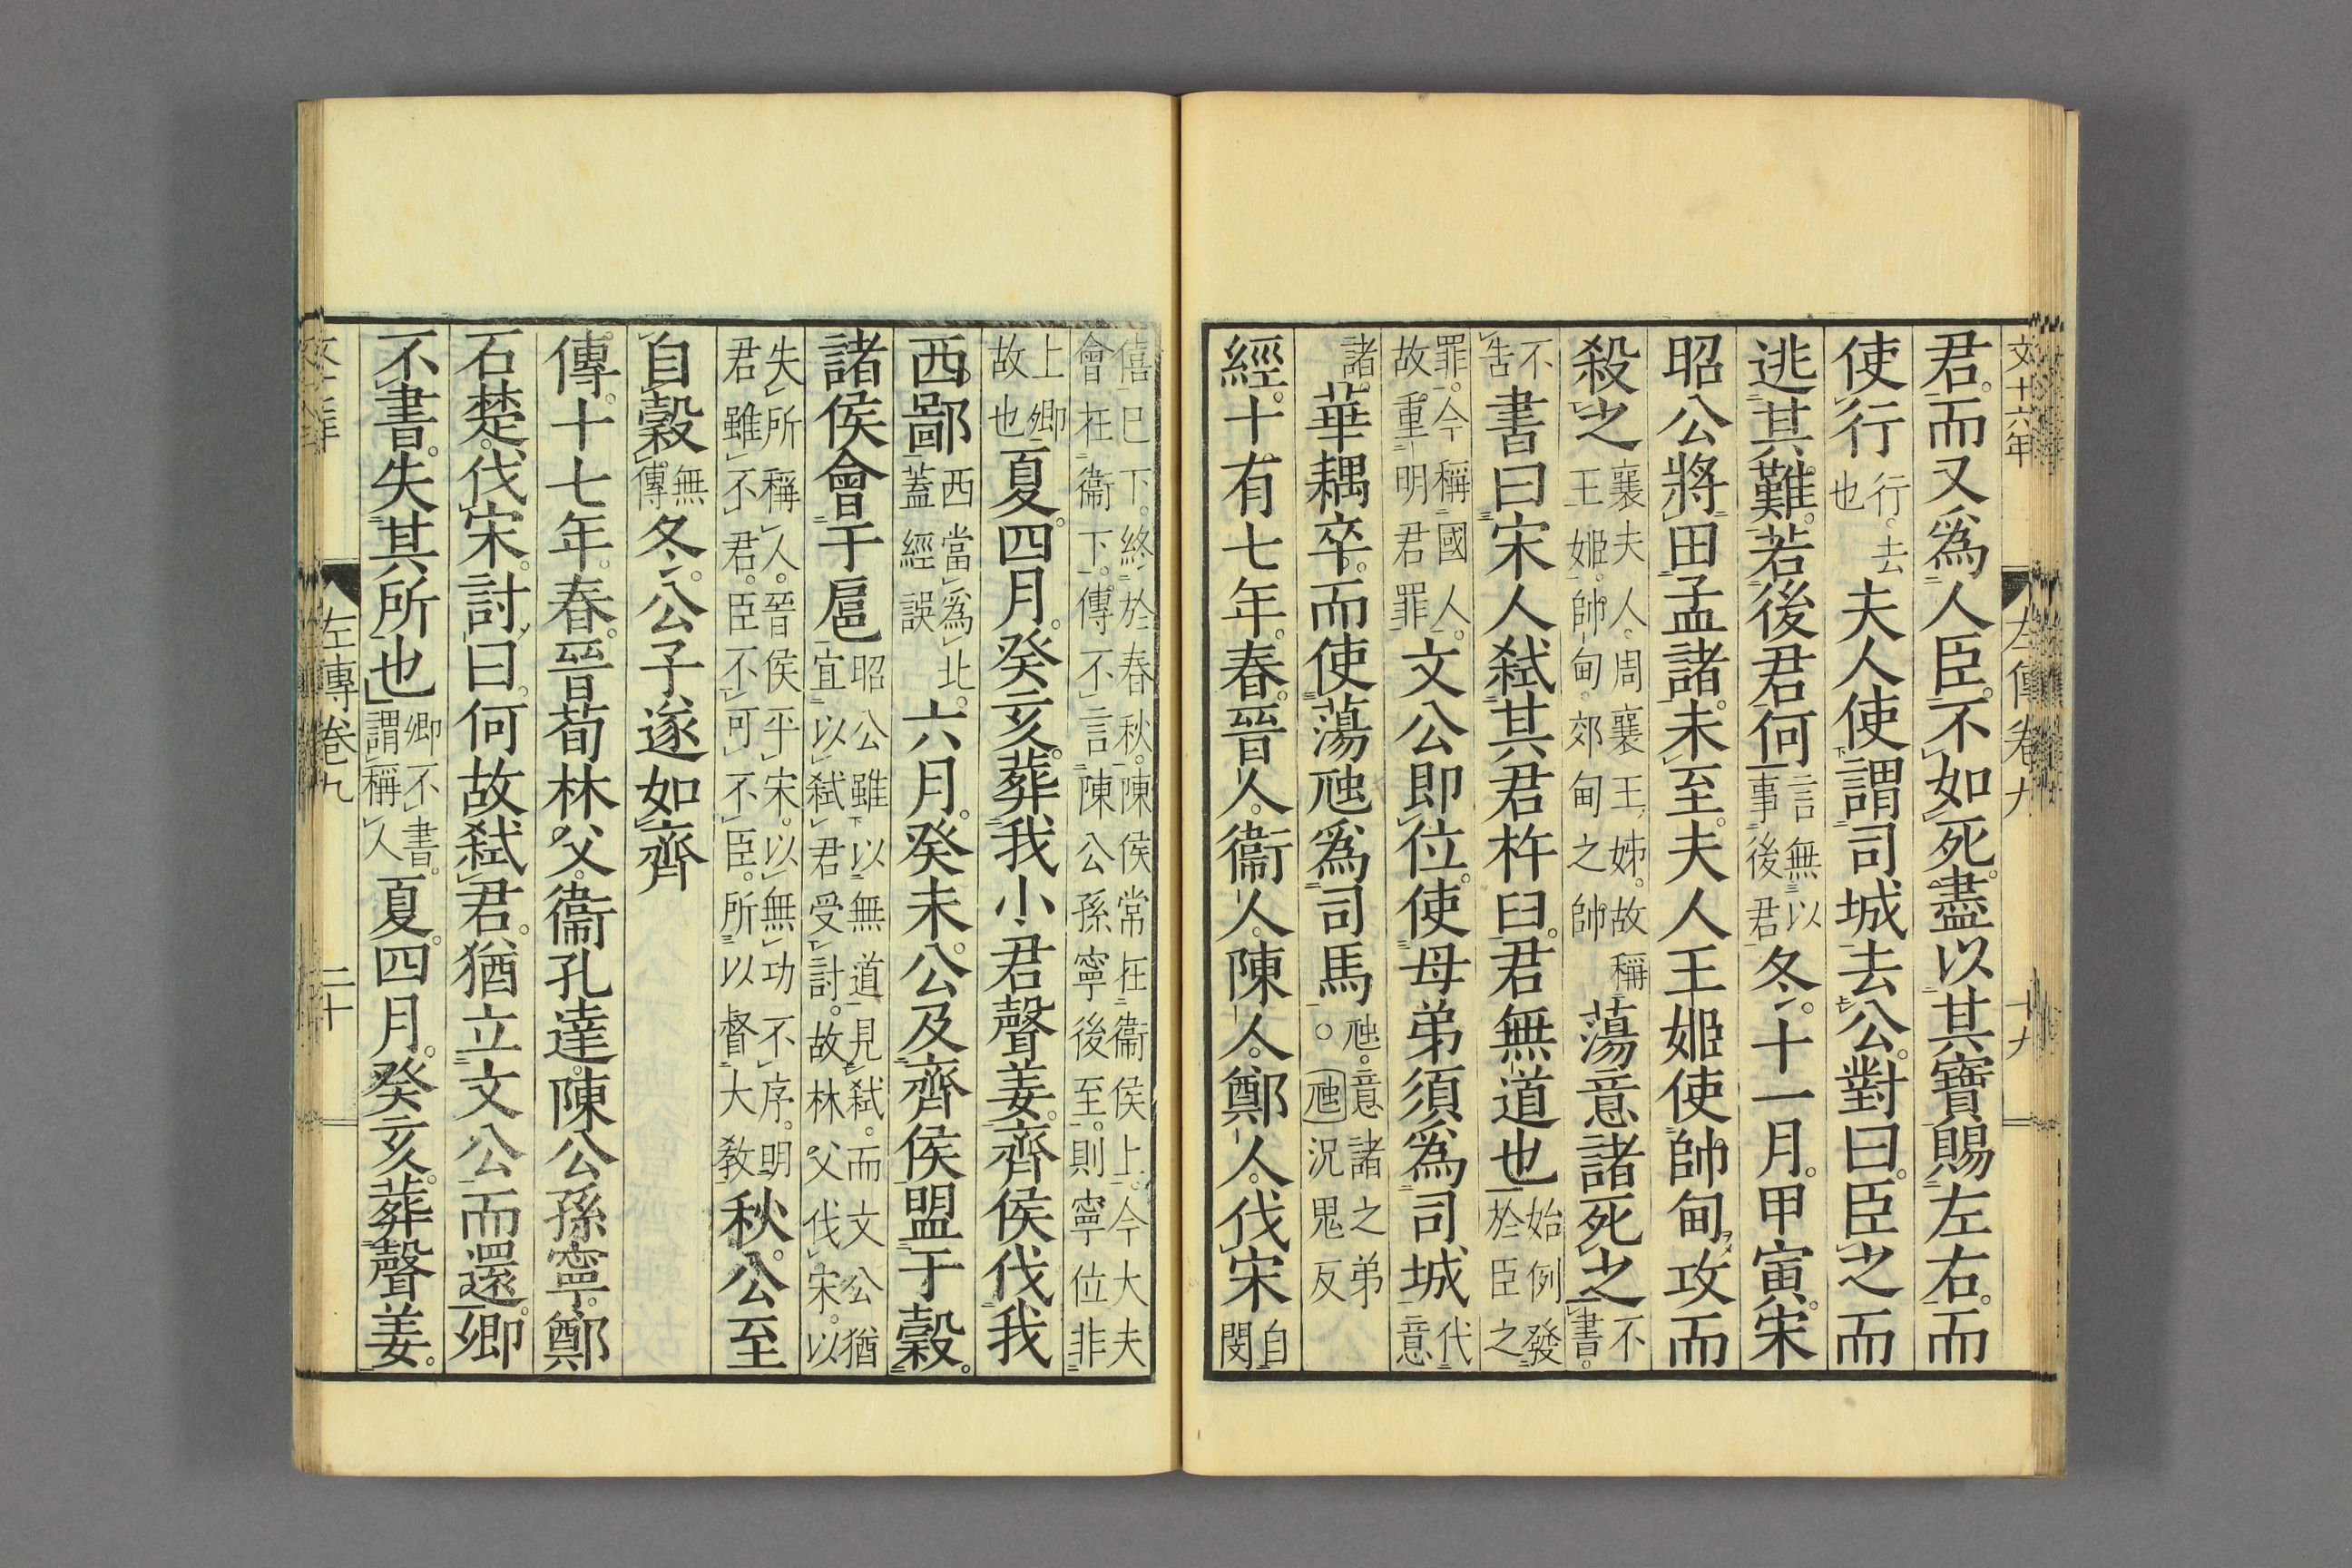 文十六年 左傳卷九 十九
君。而又爲人臣。不如死。盡以其寶賜左右。而
使行行。去也夫人使謂司城去公。對曰。臣之而
逃其難。若後君何言無以事後君冬。十一月。甲寅。宋
昭公將田孟諸。未至。夫人王姬使帥甸攻而
殺之襄夫人。周襄王姊。故稱王姬。帥甸。郊甸之帥蕩意諸死之不書。
不告書曰。宋人弑其君杵臼。君無道也始例發於臣之
罪。今稱國人。故重明君罪文公即位。使母弟須爲司城代意
諸。華耦卒。而使蕩虺爲司馬虺。意諸之弟。虺況鬼反
經。十有七年。春。晉人。衞人。陳人。鄭人。伐宋自閔
僖已下。終於春秋。陳侯常在衞侯上。今大夫會在衞下。傳不言陳公孫寧後至。則寧位非
上卿故也夏。四月。癸亥。葬我小君聲姜。齊侯伐我
西鄙西當爲北。蓋經誤六月。癸未。公及齊侯盟于穀。
諸侯會于扈昭公雖以無道見弑。而文公猶宜以弑君受討。故林父伐宋。以
失所稱人。晉侯平宋。以無功不序。明君雖不君。臣不可不臣。所以督大教秋。公至
自穀。無傳冬。公子遂如齊
傳。十七年。春。晉荀林父。衞孔達。陳公孫寧。鄭
石楚。伐宋。討曰。何故弑君。猶立文公而還。卿
不書。失其所也卿不書。謂稱人夏。四月。癸亥。葬聲姜。
左傳卷九 二十